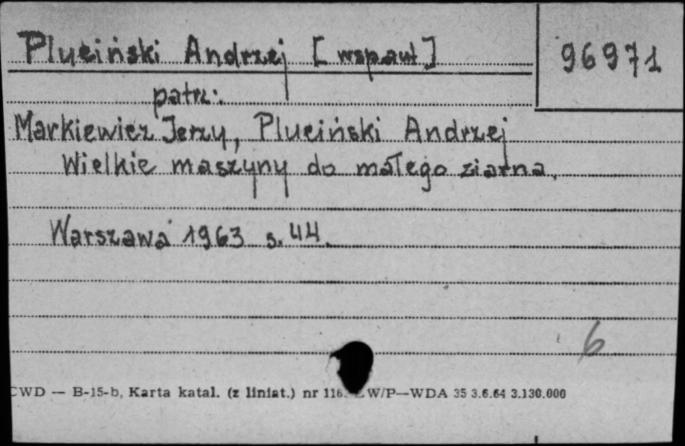 Pluciński Andrzej [wspaut]
96971
patrz:
Markiewicz Jerzy, Pluciński Andrzej
Wielkie maszyny do małego ziarna.
Warszawa 1963 s. 44.
6
CWD — B-15-b, Karta katal. (z liniat.) nr 116. W/P—WDA 35 3.6.64 3.130.000